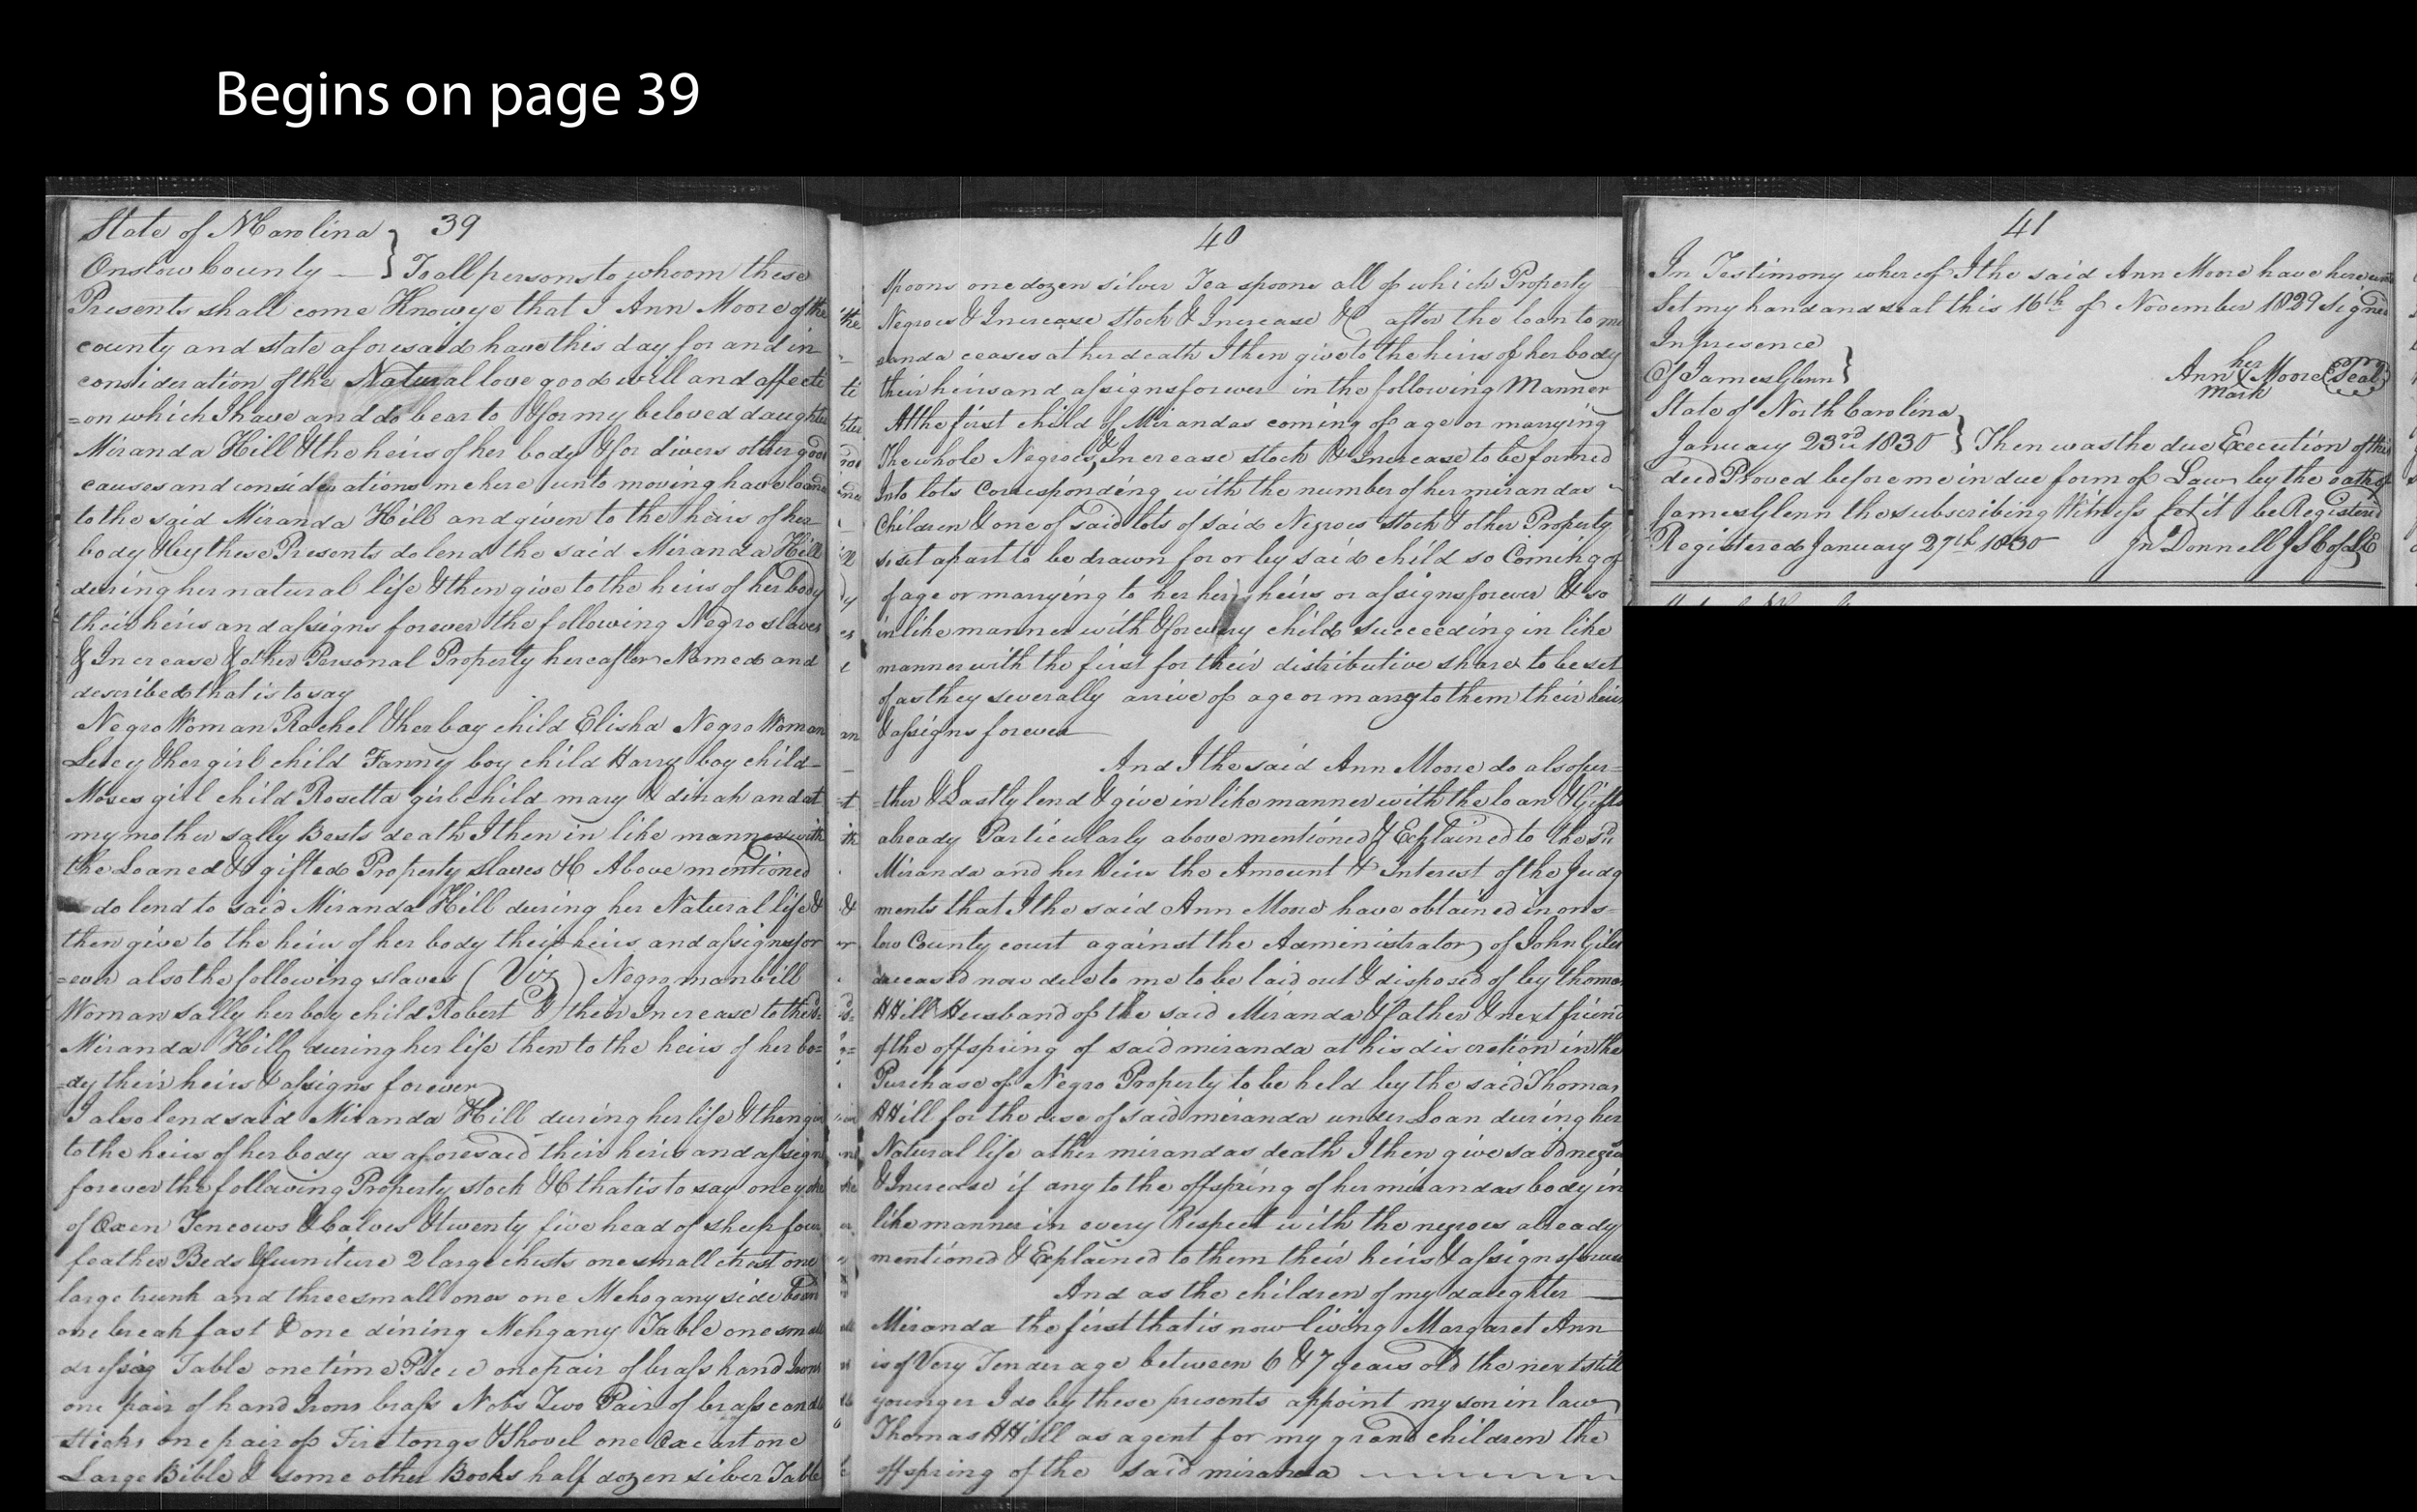 Begins on page 39
39
State of N Carolina
Onslow County } To all persons to whoom these
Presents shall come Know ye that I Ann Moore of the
county and state aforesaid have this day for and in
consideration of the Natural love good will and affecti
=on which I have and do bear to & for my beloved daughter
Miranda Hill & the heirs of her body & for divers other good
causes and considerations me here unto moving have loaned
to the said Miranda Hill and given to the heirs of her
body & by these Presents do lend the said Miranda Hill
during her natural life & then give to the heirs of her body
their heirs and assigns forever the following Negro slaves
& Increase & other Personal Property hereafter Named and
described that is to say
Negro Woman Rachel & her boy child Elisha Negro Woman
Lucy & her girl child Fanny boy child Harry boy child
Moses girl child Rosetta girl child mary & dinah and at
my mother sally Bests death I then in like manner with
the Loaned & gifted Property slaves &C Above mentioned
do lend to said Miranda Hill during her Natural life &
then give to the heirs of her body their heirs and assigns for
=ever also the following slaves (Viz) Negro man bill
Woman sally her boy child Robert & their Increase to the sd
Miranda Hill during her life then to the heirs of her bo=
=dy their heirs & assigns forever
I also lend said Miranda Hill during her life & then give
to the heirs of her body as aforesaid their heirs and assigns
forever the following Property stock &C that is to say one yoke
of Oxen Ten cows & Calves & twenty five head of sheep four
feather Beds & furniture 2 large chests one small chest one
large trunk and three small ones one Mehogany side board
one breakfast & one dining Mehgany Table one small
dressing Table one time Piece one pair of brass hand Irons
one pair of hand Irons brass Nobs Two Pair of brass candle
sticks one pair of Fire tongs & Shovel one Ox cart one
Large Bible & some other Books half dozen silver Table
40
spoons one dozen silver Tea spoons all of which Property
Negroes & Increase stock & Increase &C after the loan to mi
randa ceases at her death I then give to the heirs of her body
their heirs and assigns forever in the following Manner
At the first child of Mirandas coming of age or marrying
The whole Negroes & Increase stock & Increase to be formed
Into lots Corresponding with the number of her mirandas
Children & one of said lots of said Negroes stock & other Property
so set apart to be drawn for or by said child so Coming of
f age or marrying to her heirs or assigns forever & so
in like manner with & for every child succeeding in like
manner with the first for their distributive share to be set
of as they severally arive of age or marry to them their heirs
& assigns forever
And I the said Ann Moore do also fur=
=ther & Lastly lend & give in like manner with the loan & Gifts
already Particularly above mentioned & Explained to the sd
Miranda and her heirs the Amount & Interest of the Judg
ments that I the said Ann Moore have obtained in ons=
low County court against the Administrator of John Giles
deceased now due to me to be laid out & disposed of by thomas
H Hill Husband of the said Miranda & father & next friend
of the offspring of said miranda at his discretion in the
Purchase of Negro Property to be held by the said Thomas
H Hill for the use of said miranda under Loan during her
Natural life at her mirandas death I then give said negroes
& Increase if any to the offspring of her mirandas body in
like manner in every Respect with the negroes already
mentioned & Explained to them their heirs & assigns forever
And as the children of my daughter
Miranda the first that is now living Margaret Ann
is of Very Tender age between 6 & 7 years old the next still
younger I do by these presents appoint my son in law
Thomas H Hill as agent for my grand children the
offspring of the said miranda
41
In Testimony whereof I the said Ann Moore have hereunto
Set my hand and seal this 16th of November 1829 Signed
In presence
Of James Glenn } Ann her X mark Moore (Seal)
State of North Carolina
January 23rd 1830 } Then was the due Execution of this
deed Proved before me in due form of Law by the oath of
James Glenn the subscribing Witness Let it be Registered
Registered January 27th 1830 Jno Donnell J S C of L E